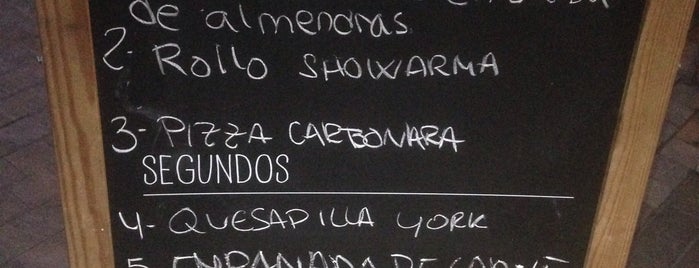 de almendras
2- Rollo SHOWARMA
3- PIZZA CARBONARA
SEGUNDOS
4- QUESADILLA YORK
5- EMPANADA DE